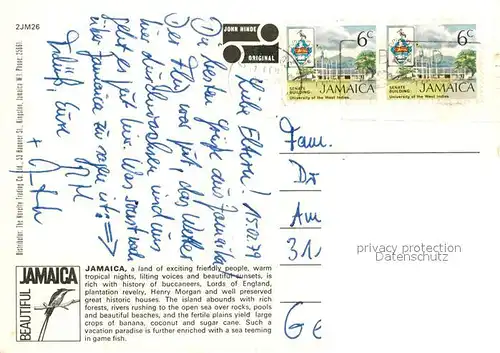 2JM26
JOHN HINDE
ORIGINAL
6c
SENATE
BUILDING
University of the West Indies
JAMAICA
6c
SENATE
BUILDING
University of the West Indies
JAMAICA
Liebe Eltern! 15.02.79
Die besten Grüße aus Jamaika
Der Flug war gut, das Wetter
hier
geht es gut hier. Was sonst noch
über Jamaica zu sagen ist: ⇒
Grüß, Eure
+
Fam.
Dr
Am
31
GE
privacy protection
Datenschutz
Distributor: The Novelty Trading Co., Ltd., 53 Hanover St., Kingston, Jamaica W.I. Phone:
BEAUTIFUL JAMAICA
JAMAICA, a land of exciting friendly people, warm
tropical nights, lilting voices and beautiful sunsets, is
rich with history of buccaneers, Lords of England,
plantation revelry, Henry Morgan and well preserved
great historic houses. The island abounds with rich
forests, rivers rushing to the open sea over rocks, pools
and beautiful beaches, and the fertile plains yield large
crops of banana, coconut and sugar cane. Such a
vacation paradise is further enriched with a sea teeming
in game fish.